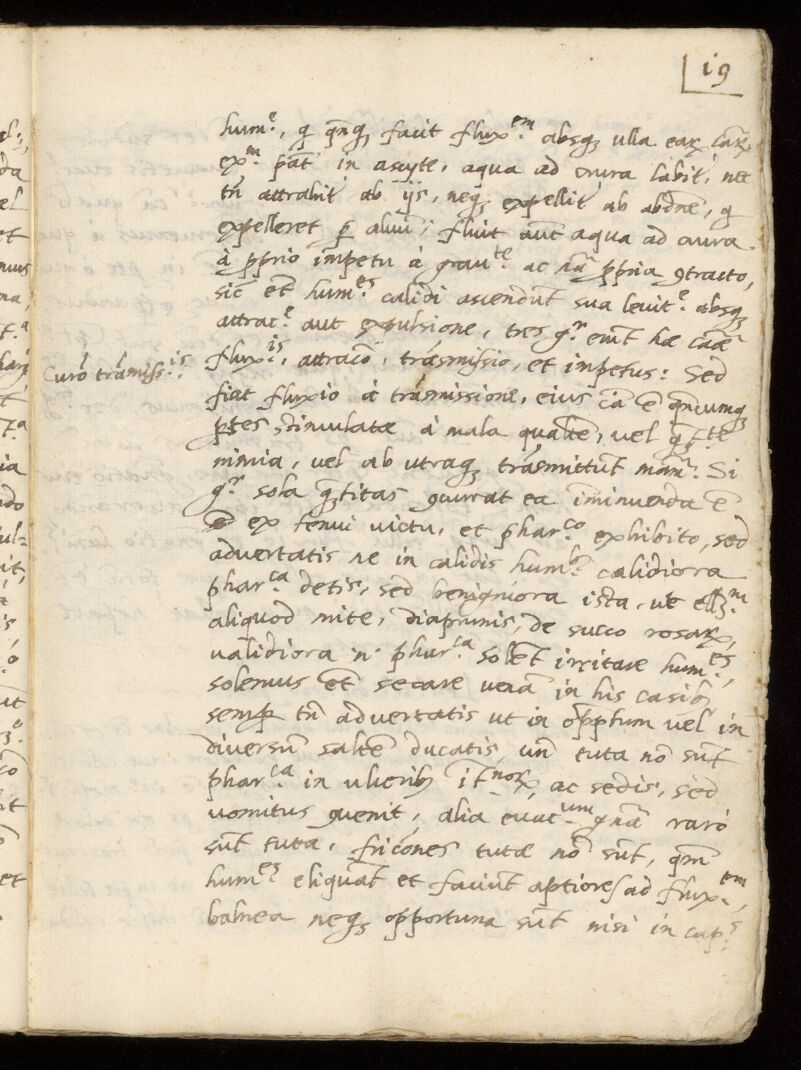 19
hum.e, q̃ qñq; facit flux.em absq; ulla earʒ carʒ.
ex.m pãt in ascyte, aqua ad crura labit, nec
tñ attrahit ab ijs, neq; expellit ab abdñe, q̃
expelleret p aluũ; fluit aũt aqua ad crura
à pprio impetu à grau.te ac nã ppria gtracto,
sic et hum.es calidi ascendũt sua leuit.e absq;
attrac.e aut expulsione, tres g.r erũt hae cãe
flux.is, attracõ, trãsmissio, et impetus: Sed
Curõ trãmiss.is
fiat fluxio à trãsmissione, eius cã ẽ qñcumq;
ptes stimulatae à mala qualte, vel q̃t.te
nimia, vel ab utraq; trãsmittũt mãm. Si
g.r sola q̃titas gcurrat ea imminuenda ẽ
ex tenui victu, et phar.co exhibito, sed
advertatis ne in calidis hum.b calidiora
phar.ca detis, sed benigniora ista, ut
aliquod mite, diaprunis, de succo rosarʒ,
validiora n. phar.ca solẽt irritare hum.es,
solemus et secare venã in his casib;
semp tñ advertatis ut in opptum vel in
diversũ saltẽ ducatis, uñ tuta nõ sũt
phar.ca in ulcerib; ac sedis, sed
vomitus gvenit, alia evac.um gña raró
sũt tuta, fricõnes tutae nõ sũt, qm̃
hum.es eliquãt et faciũt aptiores ad flux.em,
balnea neq; opportuna sũt nisi in cap.s